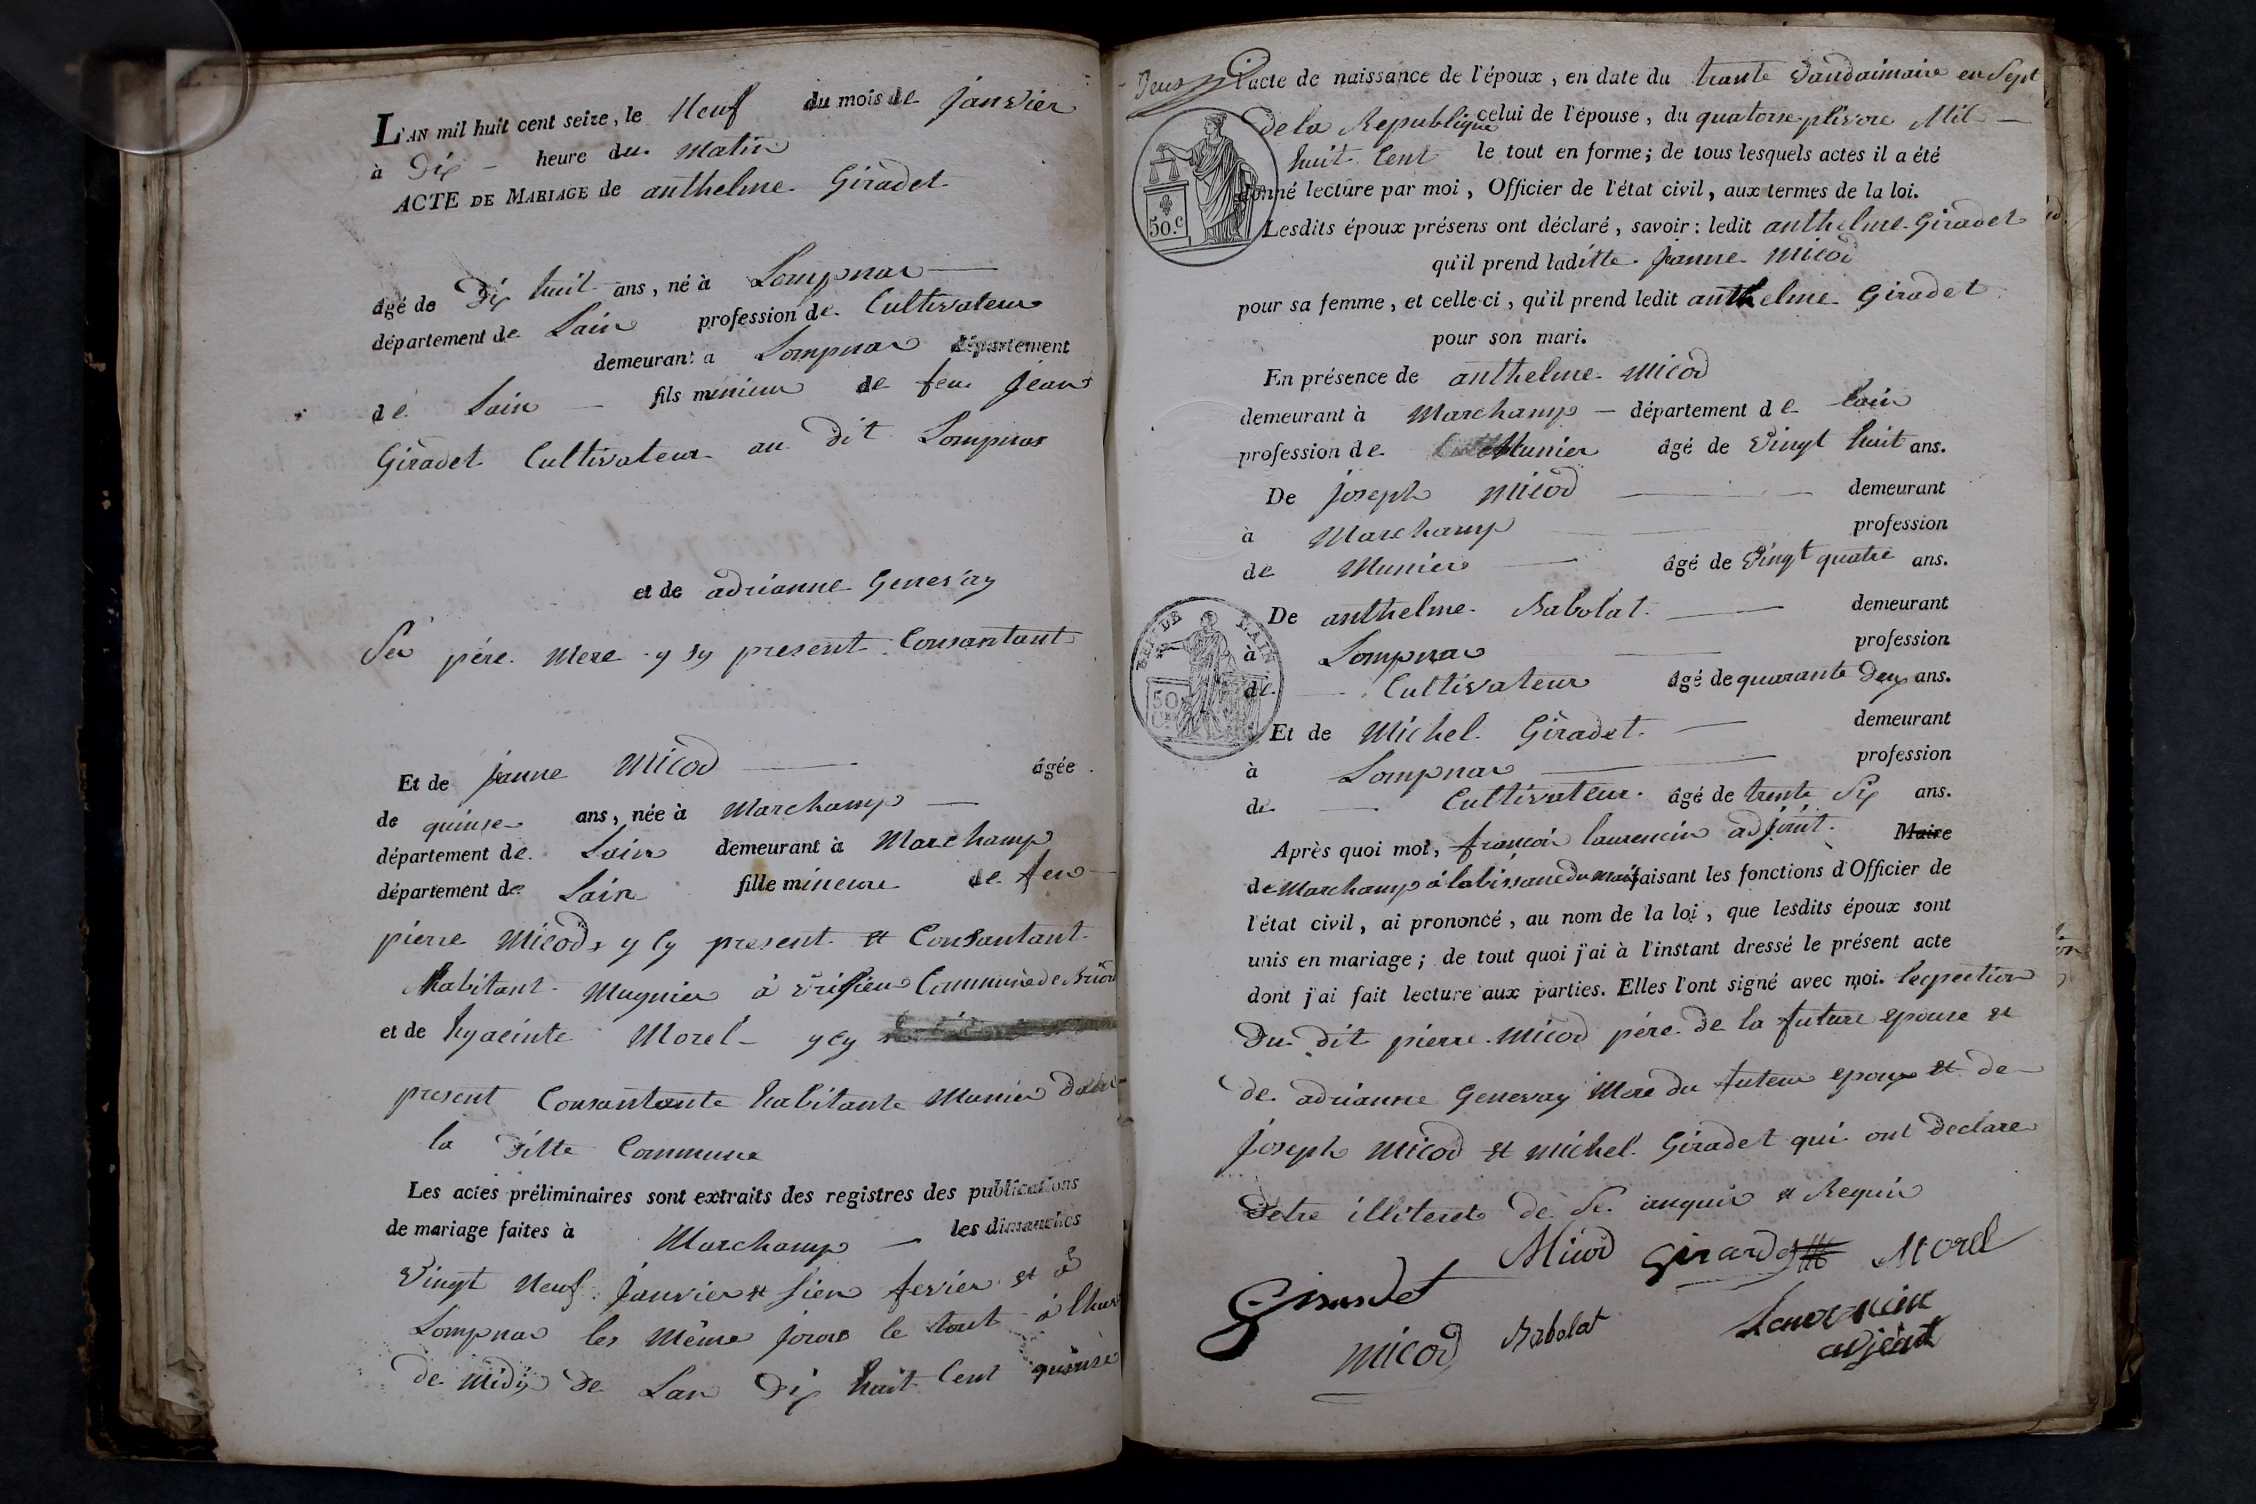 L'AN mil huit cent seize, le Neuf du mois de janvier
à Dix heure du matin
ACTE DE MARIAGE de anthelme Giradet
âgé de Dix huit ans, né à Lompnas
département de Lain profession de Cultivateur
demeurant a Lompnas département
de Lain fils mineur de feu jean
Giradet Cultivateur au dit Lompnas
et de adrianne Genevay
père mere y sy present Consantant
Et de jeanne Micod âgée
de quinse ans, née à Marchamp
département de Lain demeurant à Marchamp
département de Lain fille mineure de feu
pierre Micod y Cy present et Consantant
habitant Mugnier à vrisieu Commune de Briord
et de hyacinte Morel y cy
present Consantante habitante Munier Dans
la Ditte Commune
Les actes préliminaires sont extraits des registres des publications
de mariage faites à Marchamp les dimanches
Vingt Neuf janvier et sien fevrier et à
Lompnas les même jours le tout à lheur
de midy de Lan Dix huit Cent quinse
Deux l'acte de naissance de l'époux, en date du trante Vandaimaire en Sept
de la Republique celui de l'épouse, du quatorse plivore Mil
huit Cent le tout en forme; de tous lesquels actes il a été
donné lecture par moi, Officier de l'état civil, aux termes de la loi.
50.c
Lesdits époux présens ont déclaré, savoir: ledit anthelme Giradet
qu'il prend laditte jeanne Micod
pour sa femme, et celle-ci, qu'il prend ledit anthelme Giradet
pour son mari.
En présence de anthelme Micod
demeurant à Marchamp département de Lain
profession de Munier âgé de Vingt huit ans.
De joseph Micod demeurant
à Marchamp profession
de Munier âgé de Vingt quatre ans.
De anthelme Babolat demeurant
DE L'AIN
à Lompnas profession
de Cultivateur âgé de quarante Deux ans.
50
Et de Michel Giradet demeurant
à Lompnas profession
de Cultivateur âgé de trente Six ans.
Après quoi moi, françois laurencin adjoint Maire
de Marchamp à labissance du maire faisant les fonctions d'Officier de
l'état civil, ai prononcé, au nom de la loi, que lesdits époux sont
unis en mariage; de tout quoi j'ai à l'instant dressé le présent acte
dont j'ai fait lecture aux parties. Elles l'ont signé avec moi. lexception
du dit pierre Micod père de la future epouse et
de adrianne Genevay Mere du futeur epoux et de
joseph Micod et michel Giradet qui ont declare
detre illiteret de Se anquis et Requis
Micod Girardet Morel
Girardet
micod Babolat Laurencin
adjoint